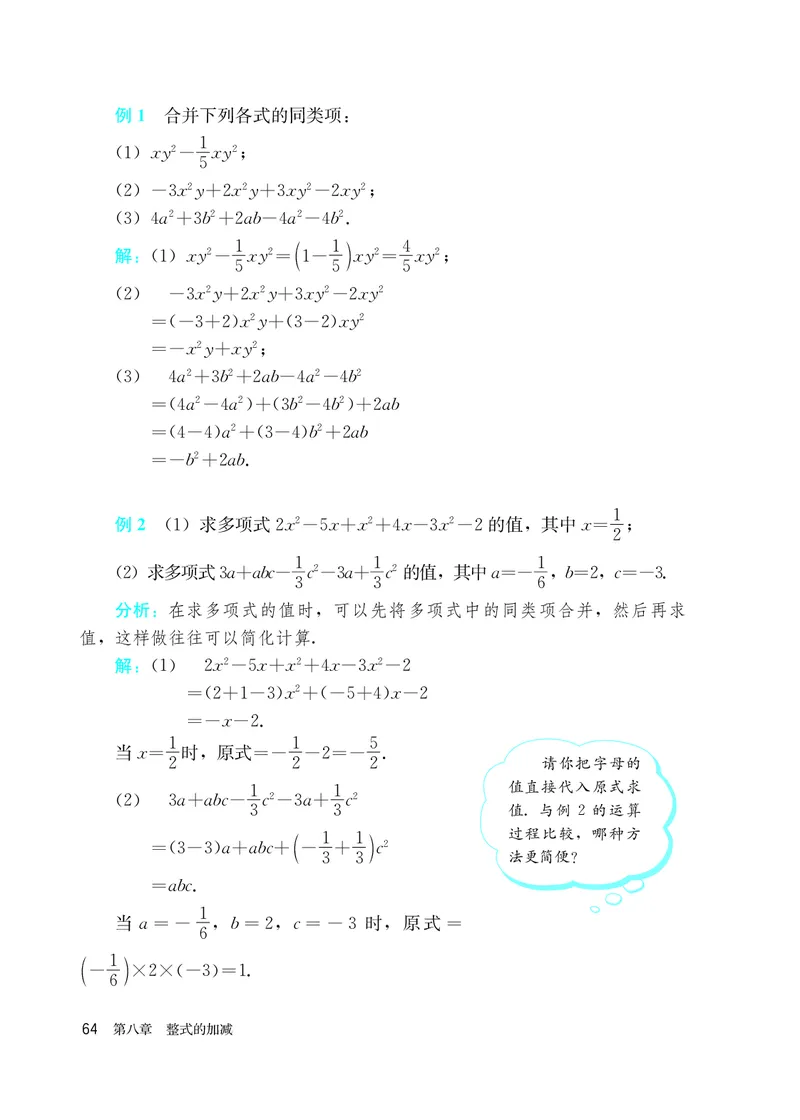 例 1 合并下列各式的同类项：
(1) xy²－1/5 xy²；
(2) －3x²y＋2x²y＋3xy²－2xy²；
(3) 4a²＋3b²＋2ab－4a²－4b².
解：(1) xy²－1/5 xy²＝(1－1/5)xy²＝4/5 xy²；
(2) －3x²y＋2x²y＋3xy²－2xy²
＝(－3＋2)x²y＋(3－2)xy²
＝－x²y＋xy²；
(3) 4a²＋3b²＋2ab－4a²－4b²
＝(4a²－4a²)＋(3b²－4b²)＋2ab
＝(4－4)a²＋(3－4)b²＋2ab
＝－b²＋2ab.
例 2 (1) 求多项式 2x²－5x＋x²＋4x－3x²－2 的值，其中 x＝1/2；
(2) 求多项式 3a＋abc－1/3 c²－3a＋1/3 c² 的值，其中 a＝－1/6，b＝2，c＝－3.
分析：在求多项式的值时，可以先将多项式中的同类项合并，然后再求
值，这样做往往可以简化计算.
解：(1) 2x²－5x＋x²＋4x－3x²－2
＝(2＋1－3)x²＋(－5＋4)x－2
＝－x－2.
当 x＝1/2 时，原式＝－1/2－2＝－5/2.
(2) 3a＋abc－1/3 c²－3a＋1/3 c²
＝(3－3)a＋abc＋(－1/3＋1/3)c²
＝abc.
当 a＝－1/6，b＝2，c＝－3 时，原式＝
(－1/6)×2×(－3)＝1.
请你把字母的
值直接代入原式求
值. 与例 2 的运算
过程比较，哪种方
法更简便？
64 第八章 整式的加减